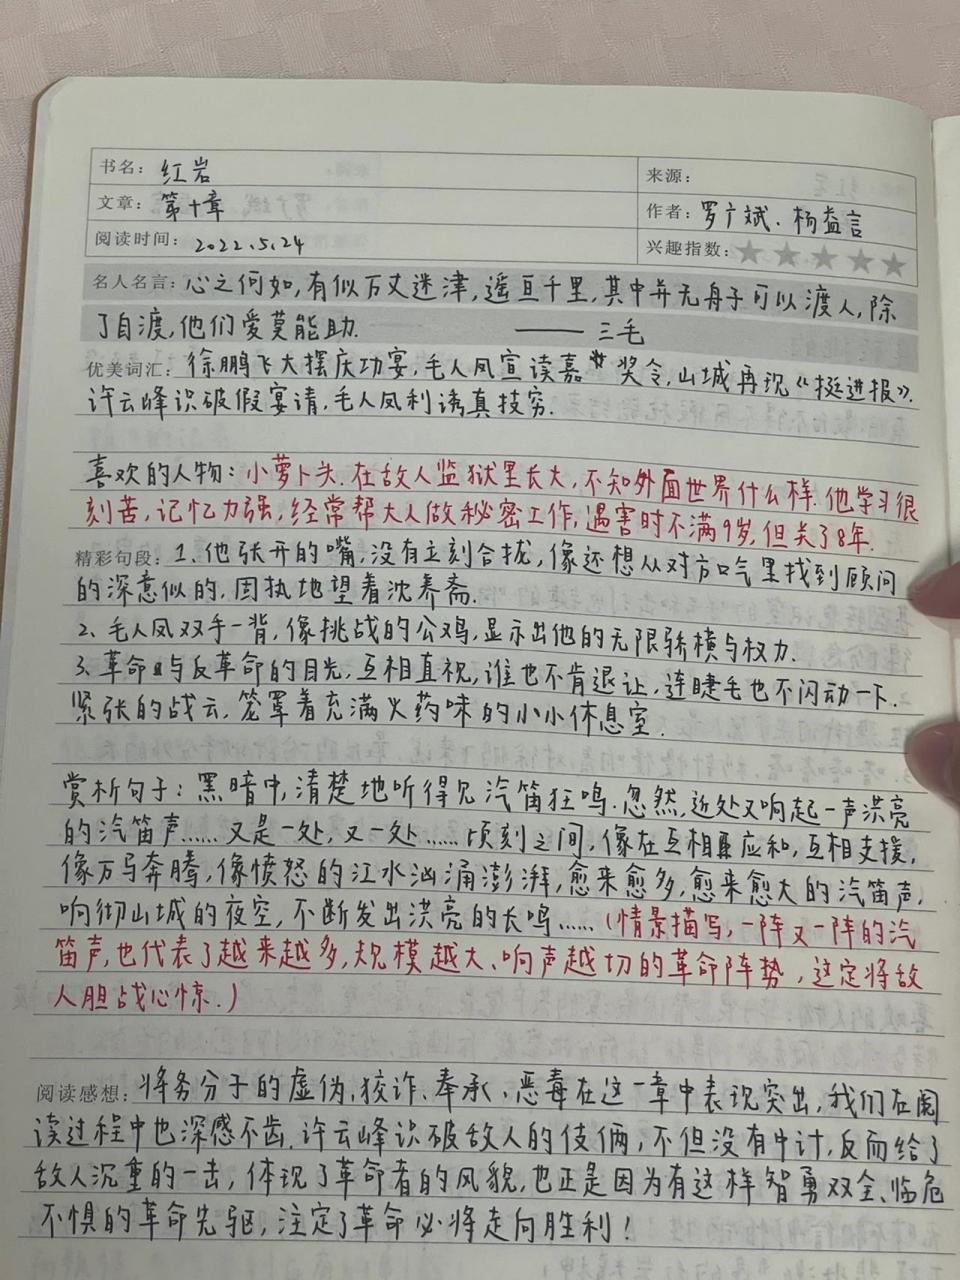 书名：红岩
来源：
文章：第十章
作者：罗广斌、杨益言
阅读时间：2022.5.24
兴趣指数：★★★★★
名人名言：心之何如，有似万丈迷津，遥亘千里，其中并无舟子可以渡人，除
了自渡，他们爱莫能助. ——三毛
优美词汇：徐鹏飞大摆庆功宴，毛人凤宣读嘉奖令，山城再现《挺进报》.
许云峰识破假宴请，毛人凤利诱真技穷.
喜欢的人物：小萝卜头.在敌人监狱里长大，不知外面世界什么样.他学习很
刻苦，记忆力强，经常帮大人做秘密工作，遇害时不满9岁，但关了8年.
精彩句段：1、他张开的嘴，没有立刻合拢，像还想从对方口气里找到顾问
的深意似的，固执地望着沈养斋.
2、毛人凤双手一背，像挑战的公鸡，显示出他的无限骄横与权力.
3、革命与反革命的目光，互相直视，谁也不肯退让，连睫毛也不闪动一下.
紧张的战云，笼罩着充满火药味的小小休息室.
赏析句子：黑暗中，清楚地听得见汽笛狂鸣.忽然，近处又响起一声洪亮
的汽笛声……又是一处，又一处……顷刻之间，像在互相应和，互相支援，
像万马奔腾，像愤怒的江水汹涌澎湃，愈来愈多，愈来愈大的汽笛声，
响彻山城的夜空，不断发出洪亮的长鸣……（情景描写，一阵又一阵的汽
笛声，也代表了越来越多，规模越大、响声越切的革命阵势，这定将敌
人胆战心惊.）
阅读感想：将务分子的虚伪、狡诈、奉承、恶毒在这一章中表现突出，我们在阅
读过程中也深感不齿.许云峰识破敌人的伎俩，不但没有中计，反而给了
敌人沉重的一击，体现了革命者的风貌，也正是因为有这样智勇双全、临危
不惧的革命先驱，注定了革命必将走向胜利！